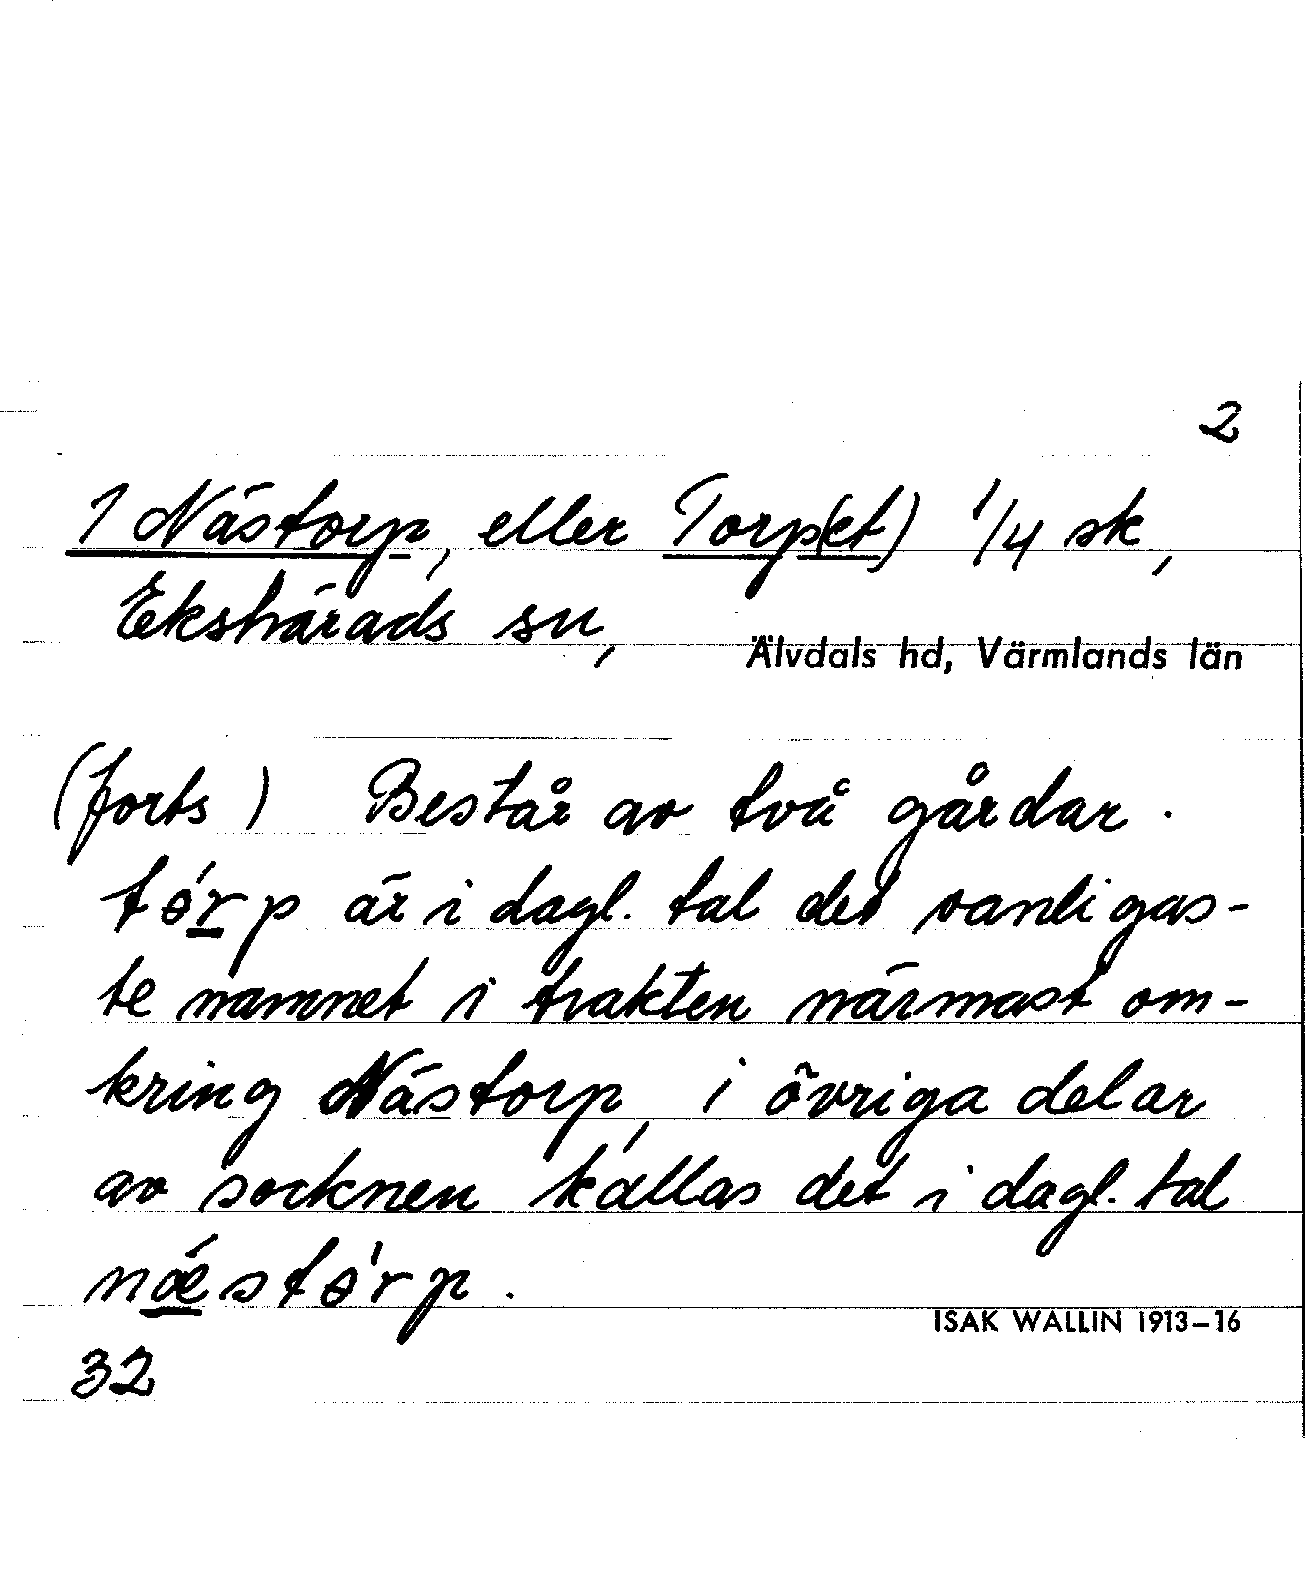 2
1 Nästorp, eller Torp(et) 1/4 sk,
Ekshärads sn,
Älvdals hd, Värmlands län
(forts) Består av två gårdar.
tɵ́rp är i dagl. tal det vanligas-
te namnet i trakten närmast om-
kring Nästorp, i övriga delar
av socknen kallas det i dagl. tal
nǽstɵ́rp.
ISAK WALLIN 1913–16
32